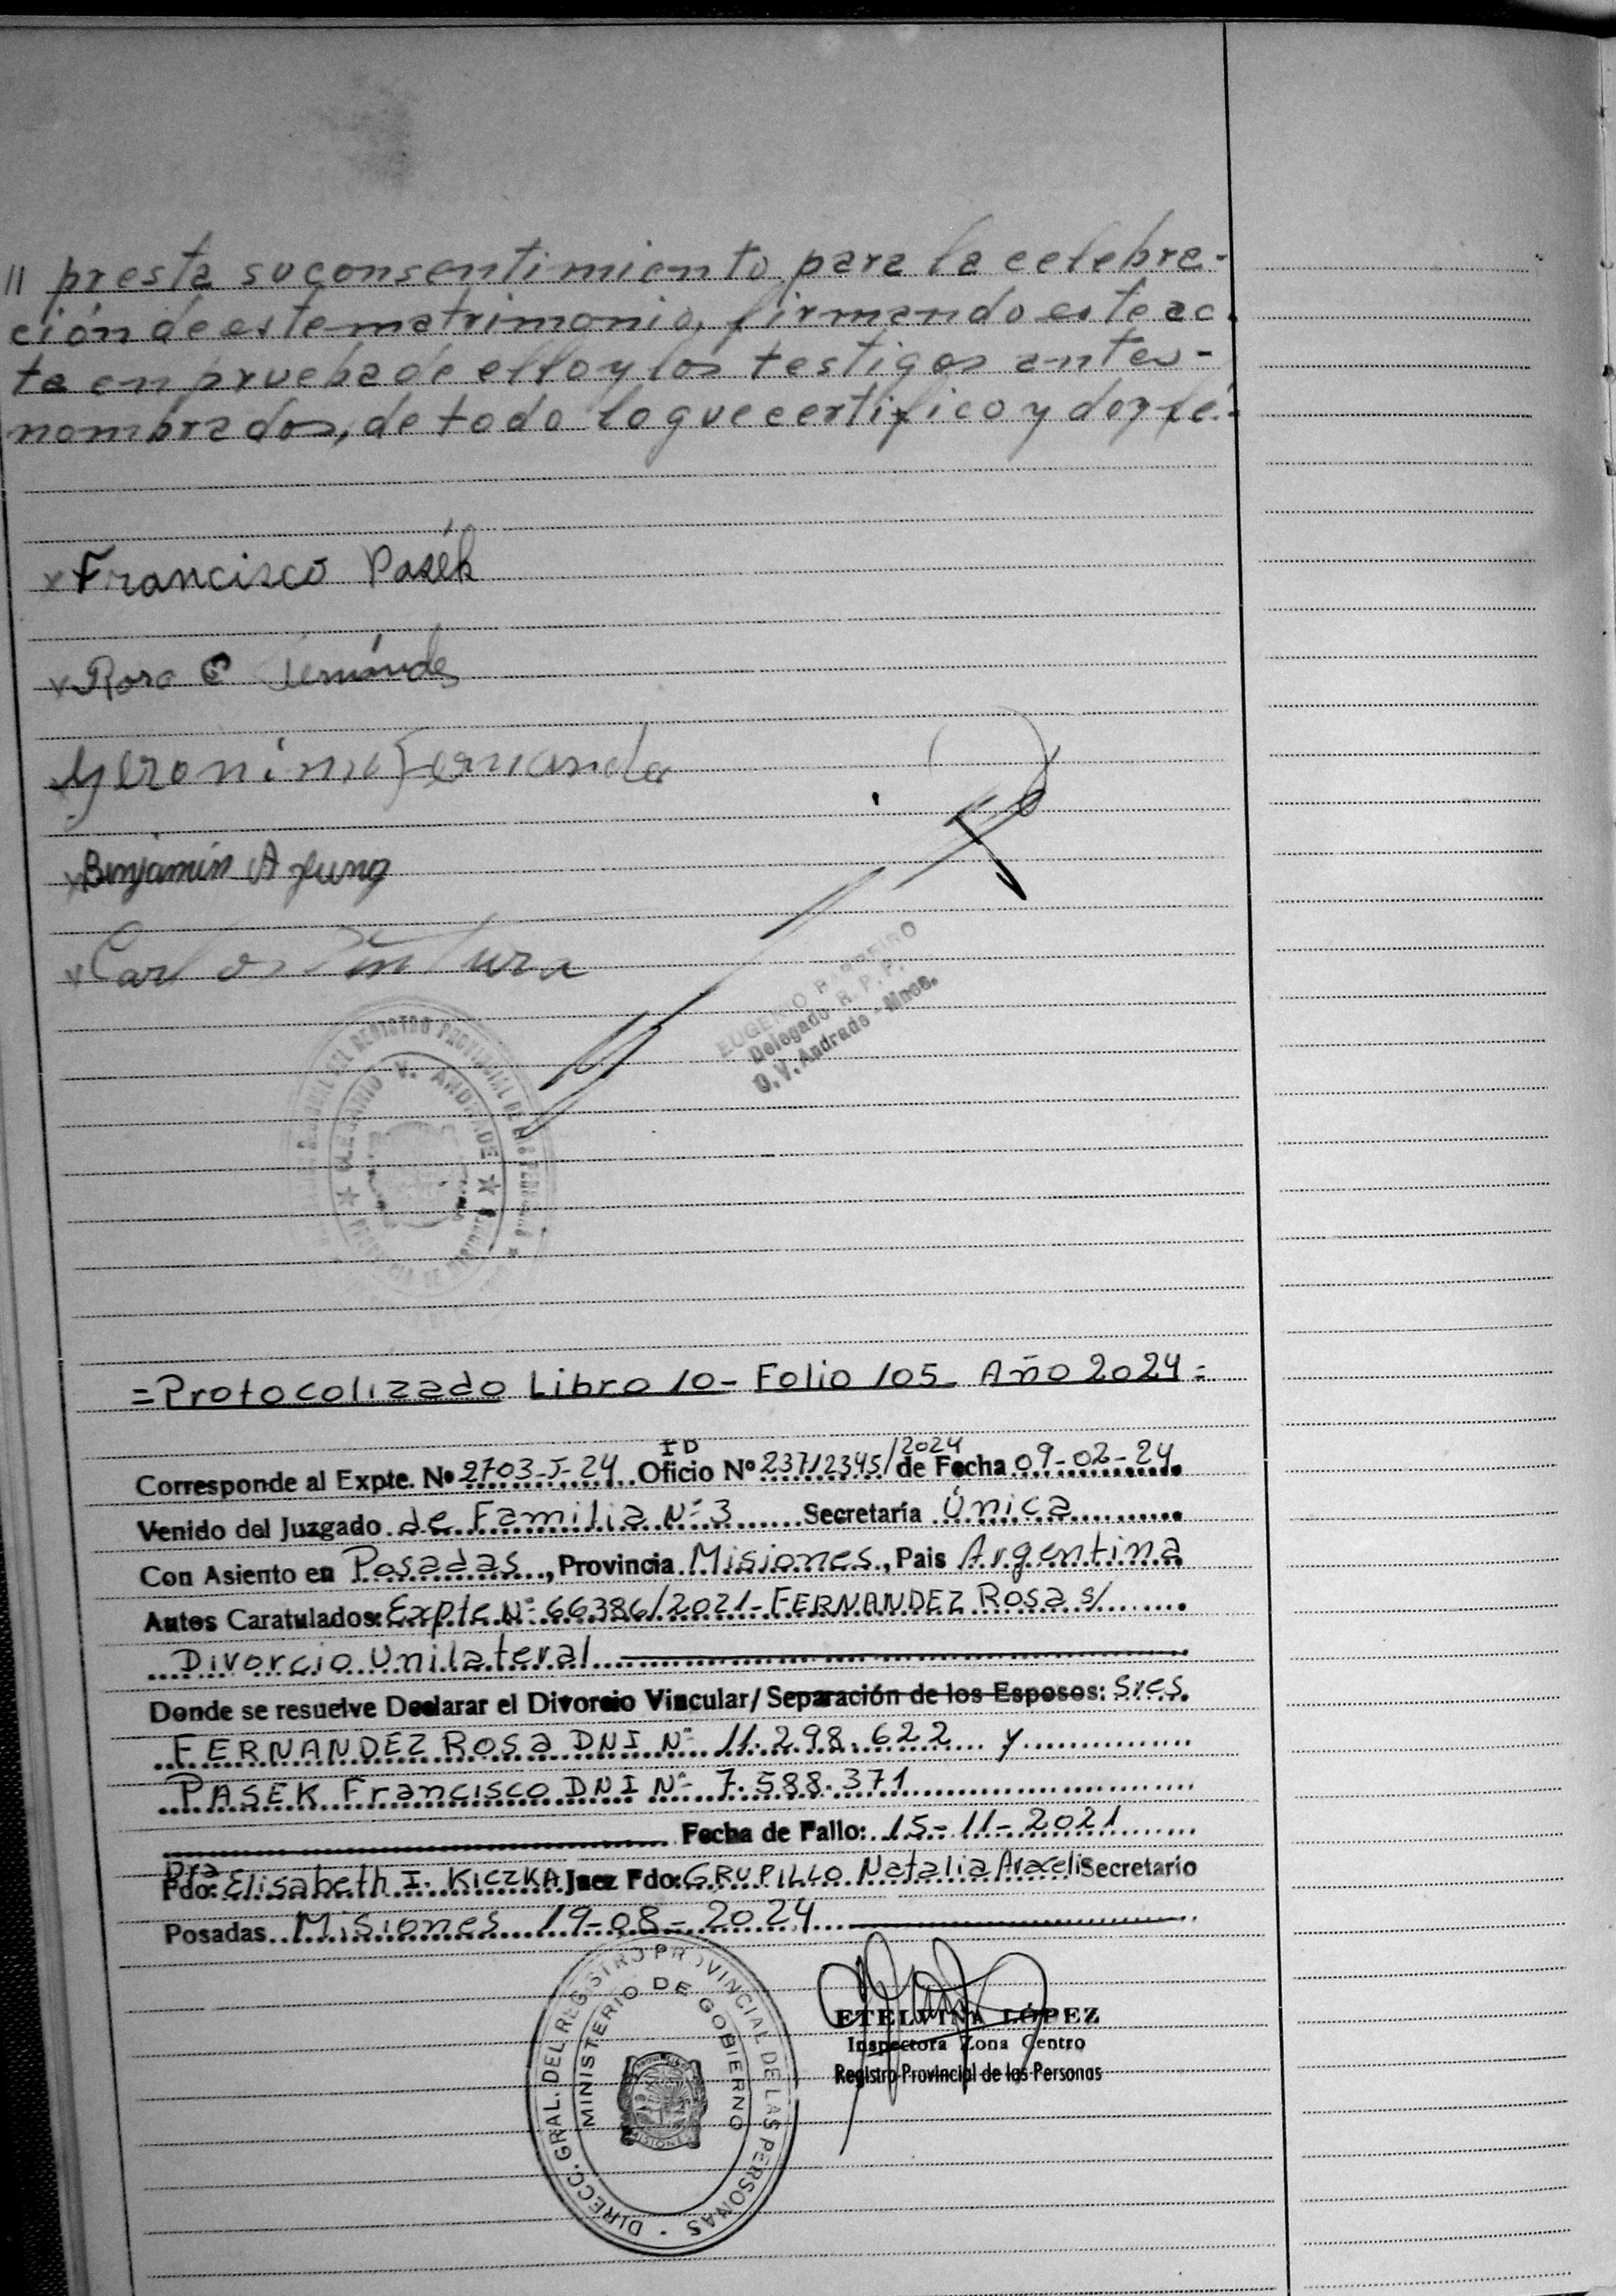 // presta su consentimiento para la celebra-
ción de este matrimonio, firmando este ac-
ta en prueba de ello y los testigos antes-
nombrados, de todo lo que certifico y doy fé.
x Francisco Pasék
x Rosa E Fernández
x Geronimo Fernande
x Benjamín A Jung
x Carlos Ventura
EUGENIO BARREIRO
Delegado R. P. P.
O. V. Andrade - Mnes.
REGISTRO PROVINCIAL DE LAS PERSONAS
OLEGARIO V. ANDRADE
PROVINCIA DE MISIONES
=Protocolizado Libro 10- Folio 105- Año 2024=
Corresponde al Expte. Nº 2703-J-24 Oficio Nº ID 23712345/2024 de Fecha 09-02-24
Venido del Juzgado de Familia Nº 3 Secretaría Única
Con Asiento en Posadas, Provincia Misiones, Pais Argentina
Autos Caratulados: Expte Nº 66386/2021- FERNANDEZ Rosa s/
Divorcio Unilateral
Donde se resuelve Declarar el Divorcio Vincular/ Separación de los Esposos: Sres
FERNANDEZ Rosa DNI Nº 11.298.622 y
PASEK Francisco DNI Nº 7.588.371
Fecha de Fallo: 15-11-2021
Fdo: Dra Elisabeth I. KICZKA Juez Fdo: GRUPILLO Natalia Araceli Secretario
Posadas Misiones 19-08-2024
DIRECC. GRAL. DEL REGISTRO PROVINCIAL DE LAS PERSONAS
MINISTERIO DE GOBIERNO
MISIONES
ETELVINA LÓPEZ
Inspectora Zona Centro
Registro Provincial de las Personas